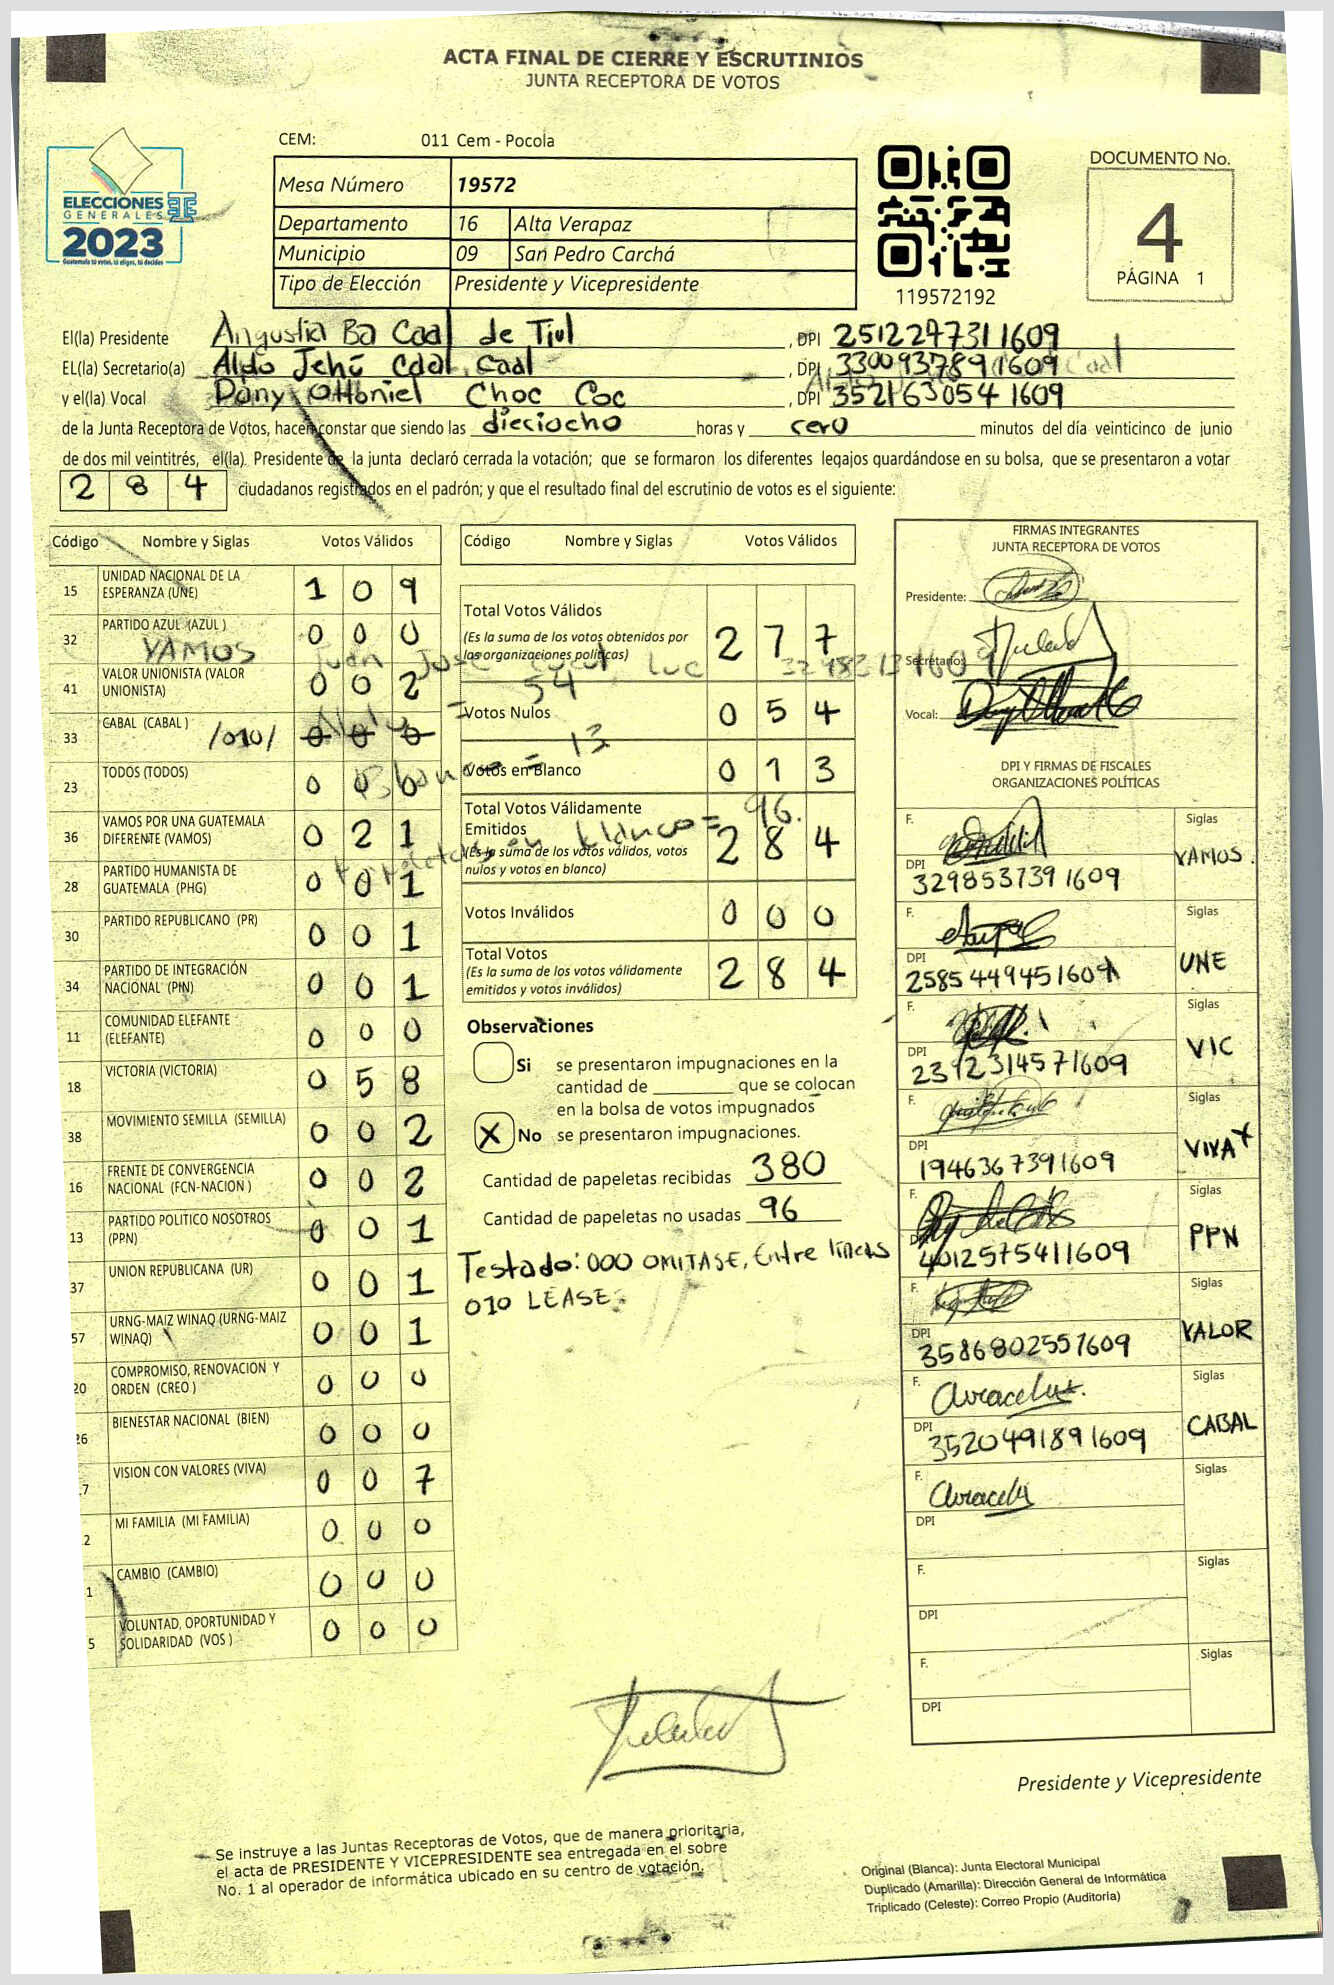 ACTA FINAL DE CIERRE Y ESCRUTINIOS
JUNTA RECEPTORA DE VOTOS
ELECCIONES
GENERALES
2023
Guatemala tú votas, tú eliges, tú decides
CEM: 011 Cem - Pocola
Mesa Número 19572
Departamento 16 Alta Verapaz
Municipio 09 San Pedro Carchá
Tipo de Elección Presidente y Vicepresidente
119572192
DOCUMENTO No.
4
PÁGINA 1
El(la) Presidente Angustia Ba Caal de Tiul, DPI 2512247311609
EL(la) Secretario(a) Aldo Jehú Caal Caal, DPI 3300937891609
y el(la) Vocal Dany Ottoniel Choc Coc, DPI 3521630541609
de la Junta Receptora de Votos, hacen constar que siendo las dieciocho horas y cero minutos del día veinticinco de junio
de dos mil veintitrés, el(la). Presidente de la junta declaró cerrada la votación; que se formaron los diferentes legajos guardándose en su bolsa, que se presentaron a votar
284 ciudadanos registrados en el padrón; y que el resultado final del escrutinio de votos es el siguiente:
Código Nombre y Siglas Votos Válidos
15 UNIDAD NACIONAL DE LA ESPERANZA (UNE) 1 0 9
32 PARTIDO AZUL (AZUL ) 0 0 0
VAMOS
41 VALOR UNIONISTA (VALOR UNIONISTA) 0 0 2
33 CABAL (CABAL ) /010/ 0 0 0
23 TODOS (TODOS) 0 0 0
36 VAMOS POR UNA GUATEMALA DIFERENTE (VAMOS) 0 2 1
28 PARTIDO HUMANISTA DE GUATEMALA (PHG) 0 0 1
30 PARTIDO REPUBLICANO (PR) 0 0 1
34 PARTIDO DE INTEGRACIÓN NACIONAL (PIN) 0 0 1
11 COMUNIDAD ELEFANTE (ELEFANTE) 0 0 0
18 VICTORIA (VICTORIA) 0 5 8
38 MOVIMIENTO SEMILLA (SEMILLA) 0 0 2
16 FRENTE DE CONVERGENCIA NACIONAL (FCN-NACION ) 0 0 2
13 PARTIDO POLITICO NOSOTROS (PPN) 0 0 1
37 UNION REPUBLICANA (UR) 0 0 1
57 URNG-MAIZ WINAQ (URNG-MAIZ WINAQ) 0 0 1
20 COMPROMISO, RENOVACION Y ORDEN (CREO ) 0 0 0
26 BIENESTAR NACIONAL (BIEN) 0 0 0
7 VISION CON VALORES (VIVA) 0 0 7
2 MI FAMILIA (MI FAMILIA) 0 0 0
1 CAMBIO (CAMBIO) 0 0 0
5 VOLUNTAD, OPORTUNIDAD Y SOLIDARIDAD (VOS ) 0 0 0
Código Nombre y Siglas Votos Válidos
Total Votos Válidos 2 7 7
(Es la suma de los votos obtenidos por las organizaciones políticas)
54
Votos Nulos 0 5 4
= 13
Votos en Blanco 0 1 3
Total Votos Válidamente Emitidos 2 8 4
(Es la suma de los votos válidos, votos nulos y votos en blanco)
blanco = 96.
Votos Inválidos 0 0 0
Total Votos 2 8 4
(Es la suma de los votos válidamente emitidos y votos inválidos)
Observaciones
Si se presentaron impugnaciones en la
cantidad de ________ que se colocan
en la bolsa de votos impugnados
X No se presentaron impugnaciones.
Cantidad de papeletas recibidas 380
Cantidad de papeletas no usadas 96
Testado: 000 OMITASE, Entre líneas
010 LEASE.
FIRMAS INTEGRANTES
JUNTA RECEPTORA DE VOTOS
Presidente:
Secretario:
Vocal:
DPI Y FIRMAS DE FISCALES
ORGANIZACIONES POLÍTICAS
F. Siglas
VAMOS
DPI 3298537391609
F. Siglas
UNE
DPI 2585449451609
F. Siglas
VIC
DPI 2392314571609
F. Siglas
VIVA
DPI 1946367391609
F. Siglas
PPN
DPI 4012575411609
F. Siglas
VALOR
DPI 3586802551609
F. Aracely Siglas
CABAL
DPI 3520491891609
F. Aracely Siglas
DPI
F. Siglas
DPI
F. Siglas
DPI
Presidente y Vicepresidente
Se instruye a las Juntas Receptoras de Votos, que de manera prioritaria,
el acta de PRESIDENTE Y VICEPRESIDENTE sea entregada en el sobre
No. 1 al operador de informática ubicado en su centro de votación.
Original (Blanca): Junta Electoral Municipal
Duplicado (Amarilla): Dirección General de Informática
Triplicado (Celeste): Correo Propio (Auditoría)